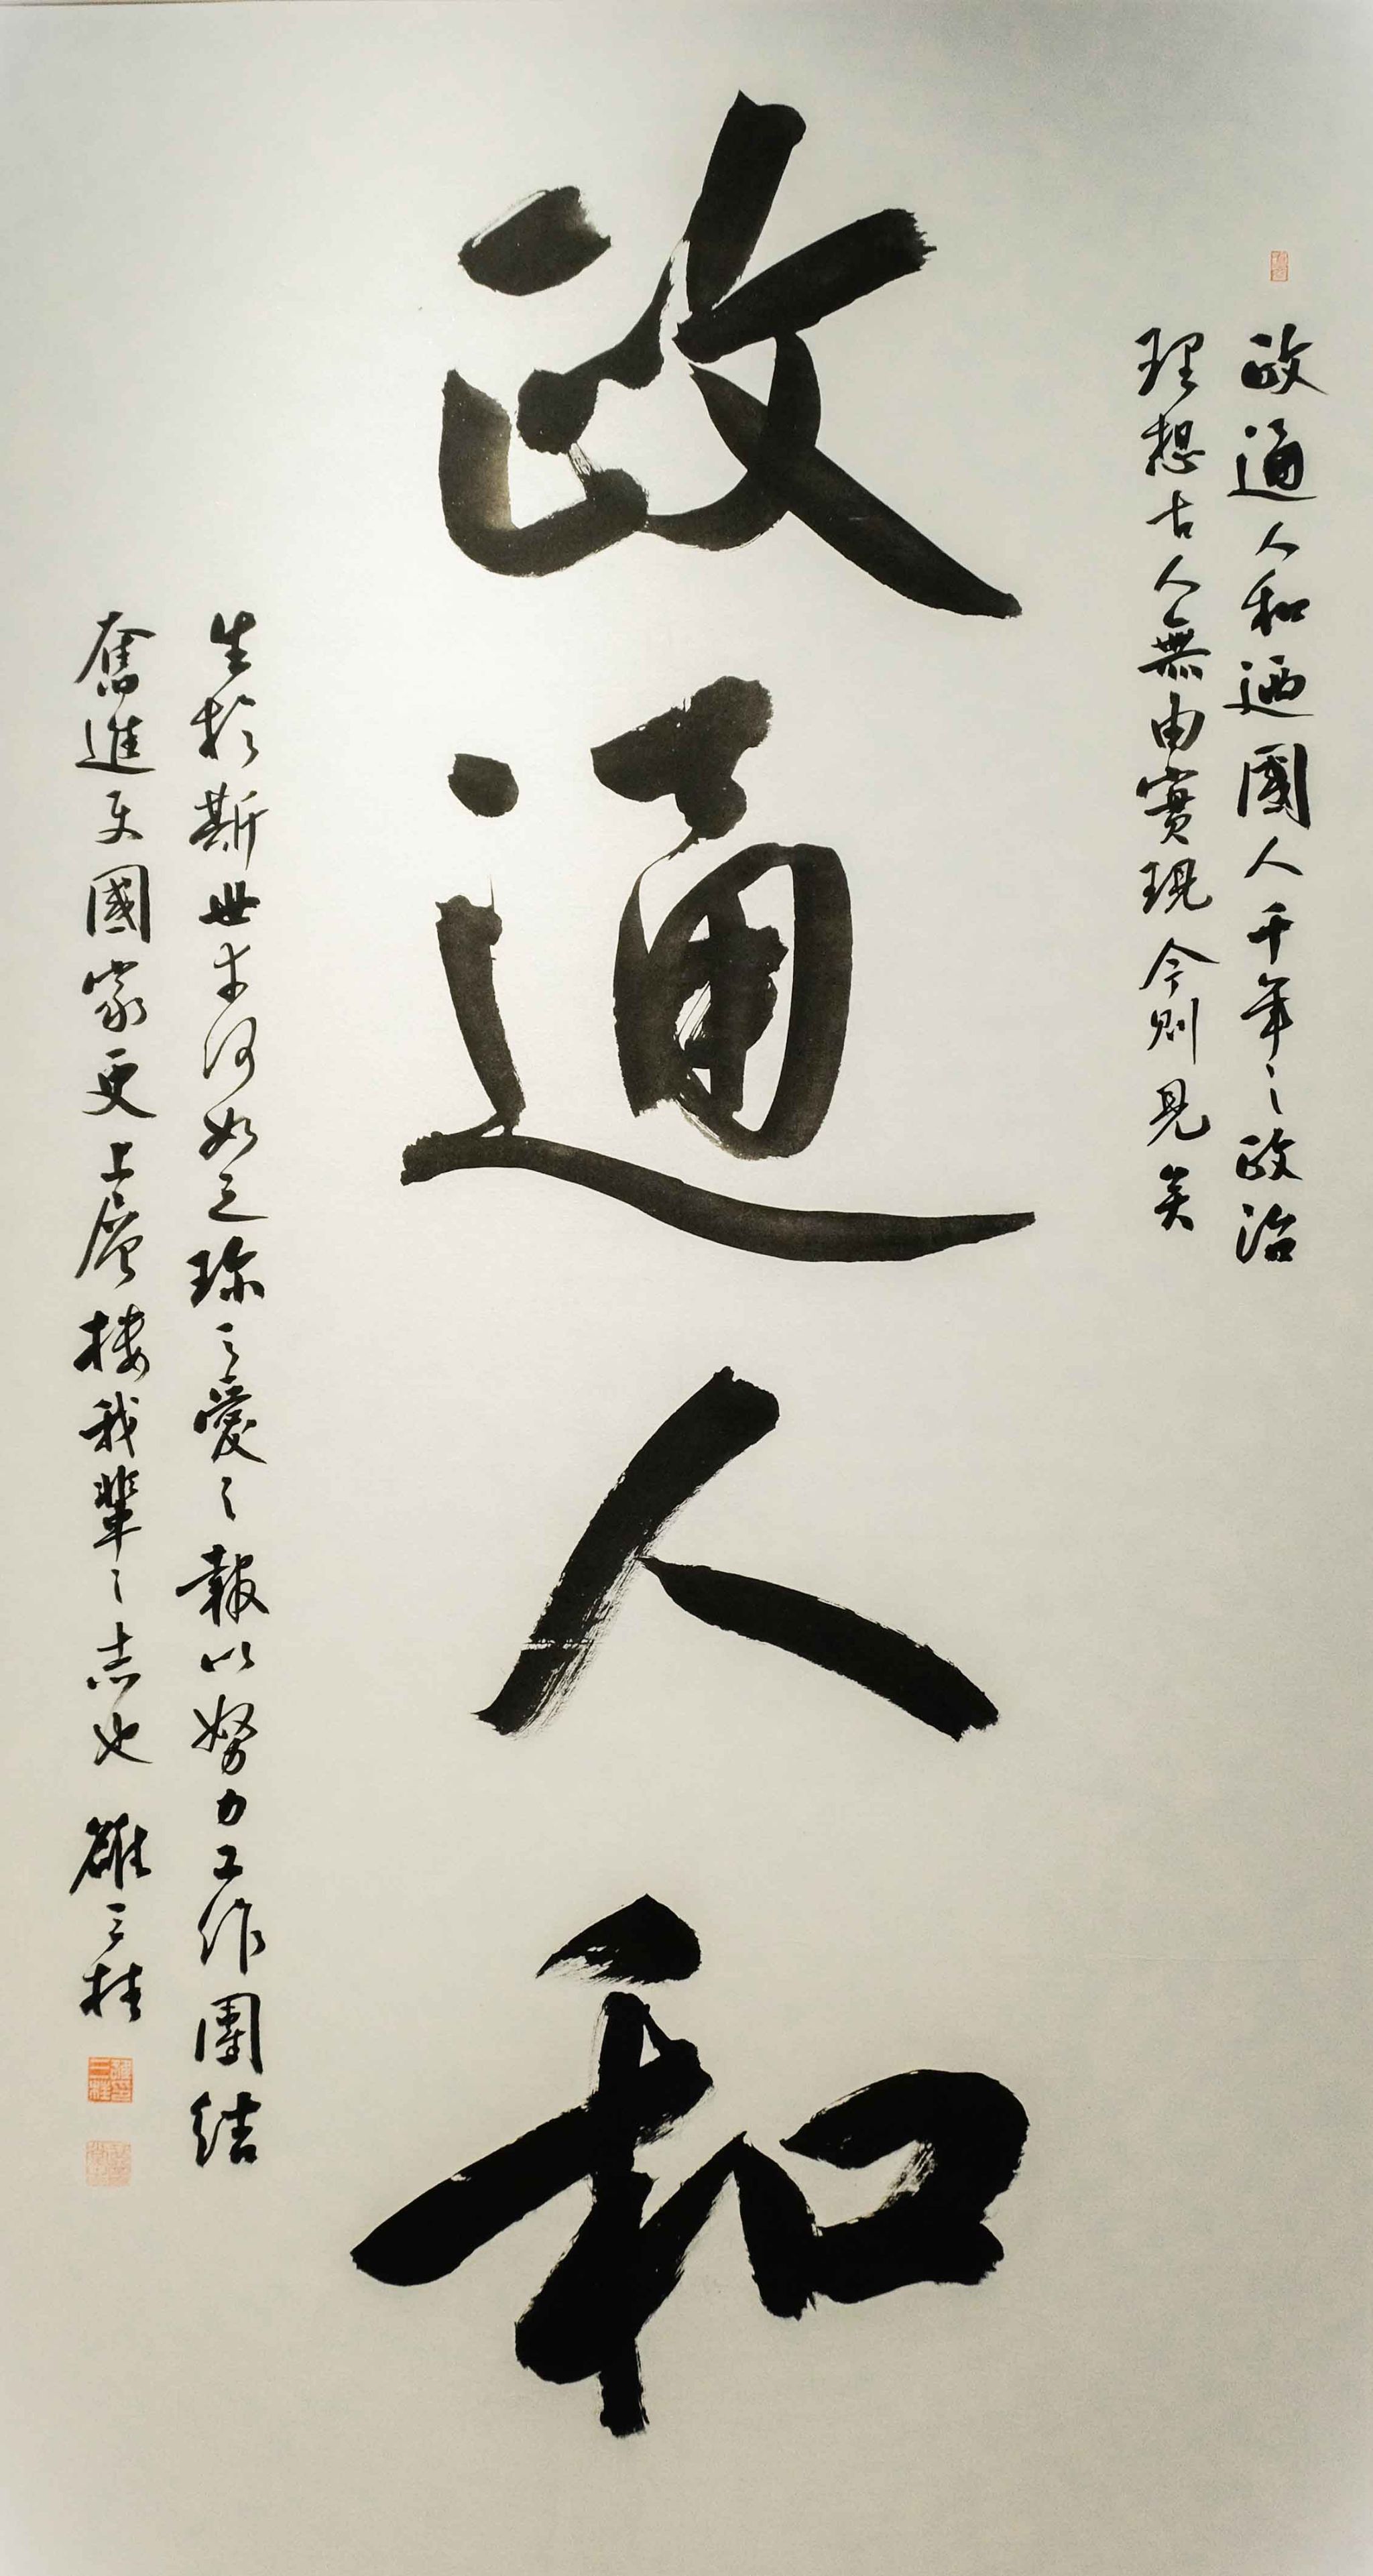 政通人和迺國人千年之政治
理想古人無由實現今則見矣
政通人和
生於斯世幸何如之珍之愛之報以努力工作團結
奮進使國家更上層樓我輩之志也 雒三桂